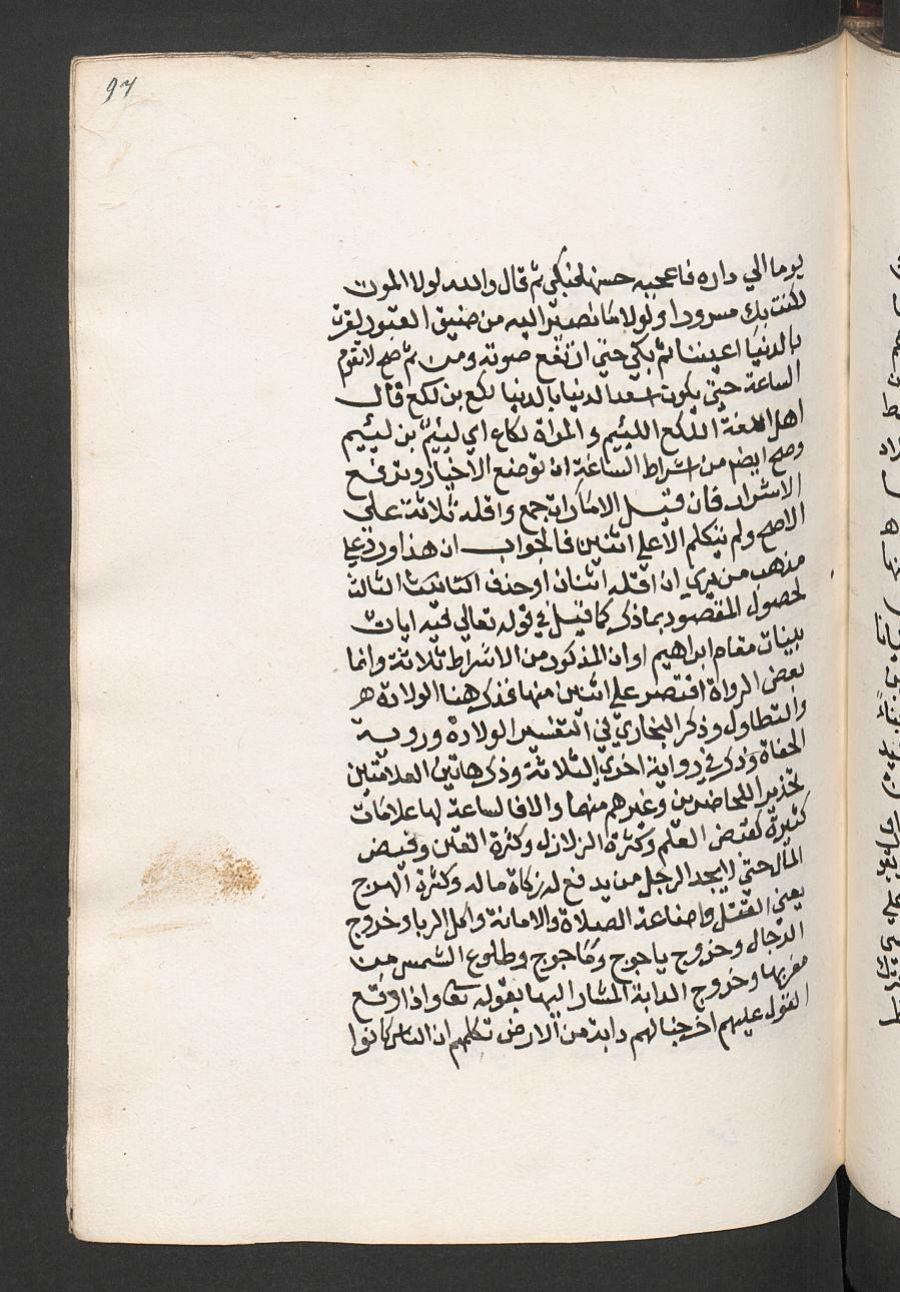 97
يوما الي داره فاعجبه حسنها فبكي ثم قال والله لولا الموت
لكنت بك مسرورا ولولا ما نصير اليه من ضيق القبور لقرت
بالدنيا اعيننا ثم بكي حتي ارتفع صوته ومن ثم صح لا تقوم
الساعة حتي يكون اسعد الدنيا بالدنيا لكع بن لكع قال
اهل اللغة اللكع اللئيم والمراة لكاع اي لئيم بن لئيم
وصح ايضا من اشراط الساعة ان توضع الاخيار وترفع
الاشرار فان قيل الامارات جمع واقله ثلاثة علي
الاصح ولم يتكلم الا علي اثنين فالجواب ان هذا ورد علي
مذهب من يري ان اقله اثنان او حذف الثالث
لحصول المقصود بما ذكر كما قيل في قوله تعالي فيه ايات
بينات مقام ابراهيم او ان المذكور من الاشراط ثلاثة وانما
بعض الرواة اقتصر علي اثنين منها فذكر هنا الولادة
والتطاول وذكر البخاري في التفسير الولادة وروية
الحفاة وذكر في رواية اخري الثلاثة وذكر هاتين العلامتين
تحذيرا للحاضرين وغيرهم منهما والا فالساعة لها علامات
كثيرة كقبض العلم وكثرة الزلازل وكثرة الفتن وفيض
المال حتي لا يجد الرجل من يدفع له زكاة ماله وكثرة الهرج
يعني القتل واضاعة الصلاة والامانة واكل الربا وخروج
الدجال وخروج ياجوج وماجوج وطلوع الشمس من
مغربها وخروج الدابة المشار اليها بقوله تعا واذا وقع
القول عليهم اخرجنا لهم دابة من الارض تكلمهم ان الناس كانوا